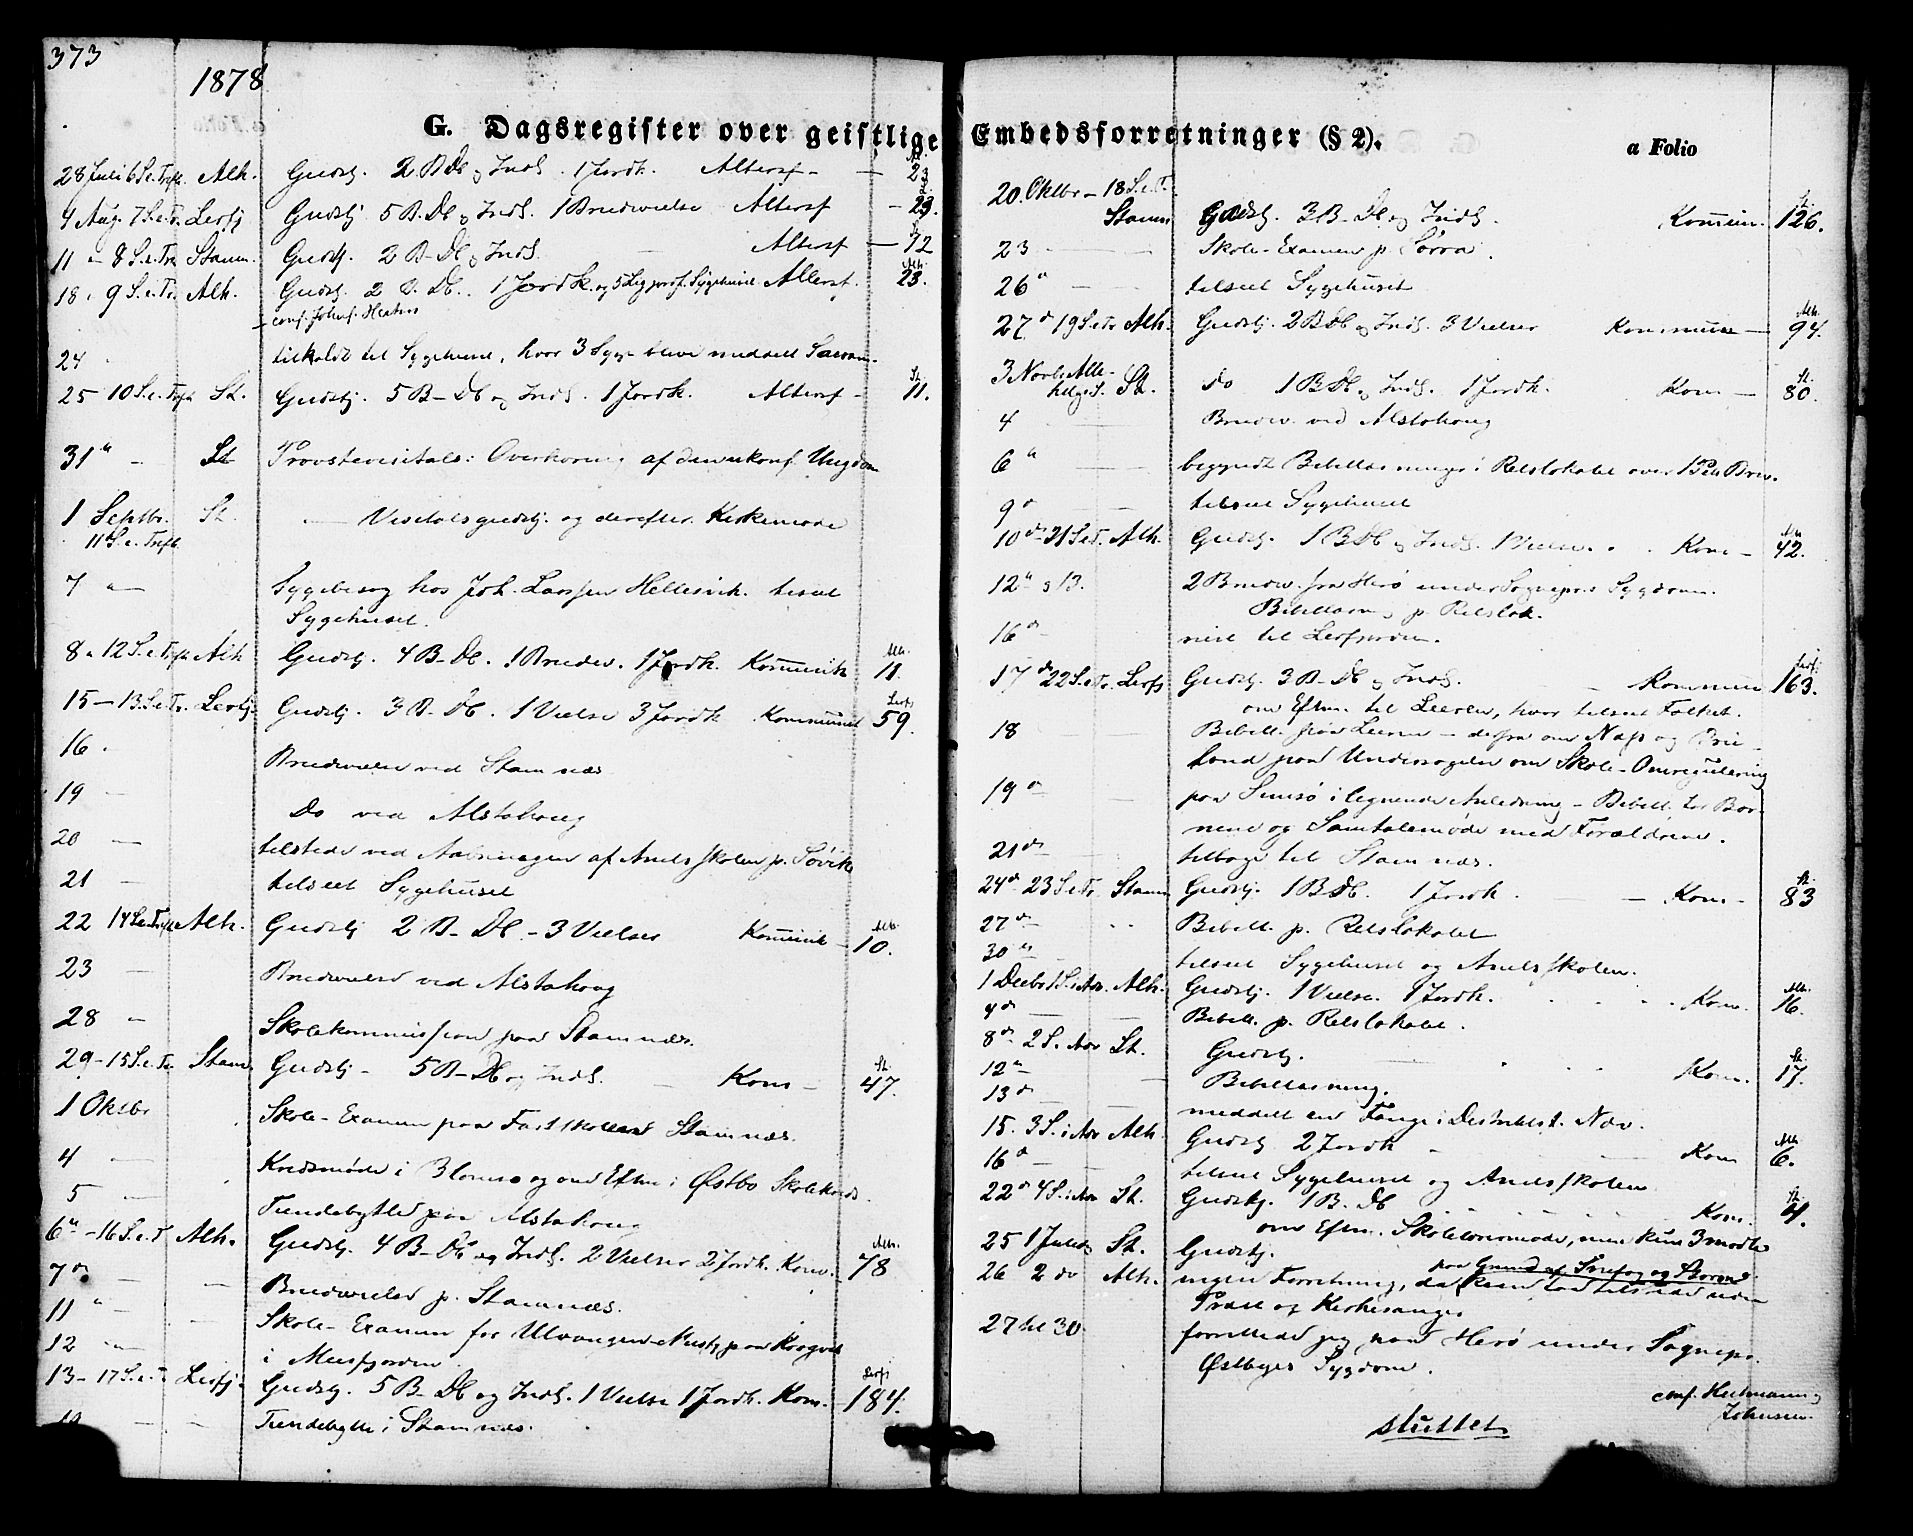 373
1878
G. Dagsregister over geistlige Embedsforretninger (§ 2).
a Folio
28 Juli 6 S. e. Trft. Alh. Gudstj. 2 B. Db. og Indl. 1 Jordk. Altersf. – 23
4 Aug. 7 S. e. Tr. Lerfj Gudstj 5 B. Db. og Indl. 1 Brudevielse Altersf – 23.
11 " 8 S. e. Tr. Stamn. Gudstj. 2 B. Db. og Indl. Altersf – 12
18 " 9 S. e. Tr. Alh. Gudstj. 2 B. Db. 1 Jordk. og 5 Sygehuset Altersf. 23.
conf. Johnf.
24 tilkaldt til Sygehuset, hvor 3 Syge bleve meddelt Sacram.
25 10 S. e. Trft St. Gudstj. 5 B. Db og Indl. 1 Jordk. Altersf – 11.
31 " – St Provstevisitats: Overhøring af den ukonf. Ungdom
1 Septbr. St. — Visitatsgudstj. og derefter Kirkemøde
11 S. e. Trft.
7 " Sygebesøg hos Joh. Larssen Hellesvik. tilseet
Sygehuset.
8 " 12 S. e. Trft Alh Gudstj. 4 B. Db. 1 Brudev. 1 Jordk. Kommunik 11.
15 – 13 S. e. Tr. Lerfj. Gudstj. 3 B. Db. 1 Vielse 3 Jordk. Kommunik 59.
16 . Brudevielse ved Stamnæs
19 – Do ved Alstahoug
20 – tilstede ved Aabningen af Amtsskolen p. Søvik
21 – tilseet Sygehuset
22 14 S. e. Trft Alh. Gudstj 2 B. Db. – 3 Vielser Kommunik – 10.
23 – Brudevielse ved Alstahoug
28 – Skolekommission paa Stamnæs.
29 – 15 S. e. Tr Stamn Gudstj – 5 B. Db og Indl. – Kom – 47.
1 Oktbr Skole-Examen paa Fastskolen Stamnæs.
4 — Kredsmøde i Blomsø og om Eftm i Østbø Skolekreds.
5 — Tiendebytte paa Alstahoug
6 " – 16 S. e. T Alh. Gudstj. 4 B. Db og Indl. 2 Vielser 2 Jordk. Kom. 78
7 d Brudevielse p. Stamnæs.
11 " – Skole-Examen for Ulvangen paa
12 " i Meisfjorden
13 – 17 S. e. T Leirfj. Gudstj. 5 B. Db og Indl. 1 Vielse 1 Jordk. Kom. 184.
Tiendebytte i Stamnæs.
20 Oktbr – 18 S. e. T.
Stamn Gudstj. 3 B. Db og Indl. Kommun. 126.
23 Skole-Examen p.
26 " tilseet Sygehuset
27 d 19 S. e. Tr Alh. Gudstj. 2 B. Db og Indl. 3 Vielser Kommun – 94.
3 Novbr. Alle-
helgs S. St. Do 1 B. Db. og Indl. 1 Jordk. Kom – 80.
4 Brudev. ved Alstahoug
6 " begyndt Bibellæsninger i Retslokalet over 1 Pet. Brev.
9 d tilseet Sygehuset
10 d 21 S. e. T. Alh. Gudstj. 1 B. Db og Indl. 1 Vielse. Kom – 42.
12 " og 13. 2 Brudev. fra Herø under Sognepr.s Sygdom.
Bibellæsning p. Retslok.
16 d reist til Leirfjorden.
17 d 22 S. e. Tr. Leirfj Gudstj. 3 B. Db og Indl. Kommun 163.
om Eftm. til , hvor tilseet Folket.
18 Bibell. paa – derfra om Næs og
land paa Undersøgelse om Skole-Omregulering
19 d paa i lignende Anledning – Bibell. for Bør-
nene og Samtalemøde med Forældrene.
21 d tilbage til Stamnæs.
24 d 23 S. e. Tr. Stamn Gudstj. 1 B. Db. 1 Jordk. – Kom – 83
27 d Bibell. p. Retslokalet
30 " tilseet Sygehuset og Amtsskolen.
1 Decbr 1 S. i Adv. Alh. Gudstj. 1 Vielse. 1 Jordk. Kom. 16.
4 d Bibell. p. Retslokalet.
8 d 2 S. i Adv St. Gudstj. Kom. 17.
12 " Bibellæsning.
13 d meddelt en Fange i Distriktsf. Nadv.
15. 3 S. i Adv Alh. Gudstj 2 Jordk Kom 6.
16 d tilseet Sygehuset og Amtsskolen
22 d 4 S. i Adv St. Gudstj. 1 B. Db Kom. 4.
om Eftm. Skolelærermøde, men kun 3 mødte
25 1 Juledg St. Gudstj. paa Grund af Snefog og Storm
26 2 do Alh. ingen Forretning, da kun tilstede uden
Præst og Kirkesanger
27 til 30. forrettede jeg paa Herø under Sognepr.
Østbyes Sygdom.
conf. Heitmann og
Johnsen.
sluttet